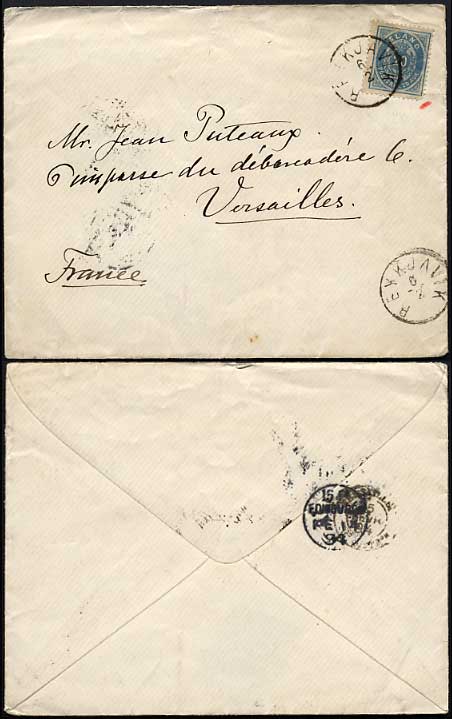 REYKJAVIK
6
2
ÍSLAND
Mr. Jean Puteaux.
l'impasse du débarcadére 6.
Versailles.
France
REYKJAVIK
6
2
15
EDINBURGH
94